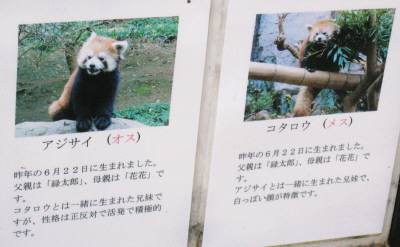 アジサイ (オス)
昨年の６月２２日に生まれました。
父親は「緑太郎」、母親は「花花」で
す。
コタロウとは一緒に生まれた兄妹で
すが、性格は正反対で活発で積極的
です。
コタロウ (メス)
昨年の６月２２日に生まれました。
父親は「緑太郎」、母親は「花花」で
す。
アジサイとは一緒に生まれた兄妹で、
白っぽい顔が特徴です。